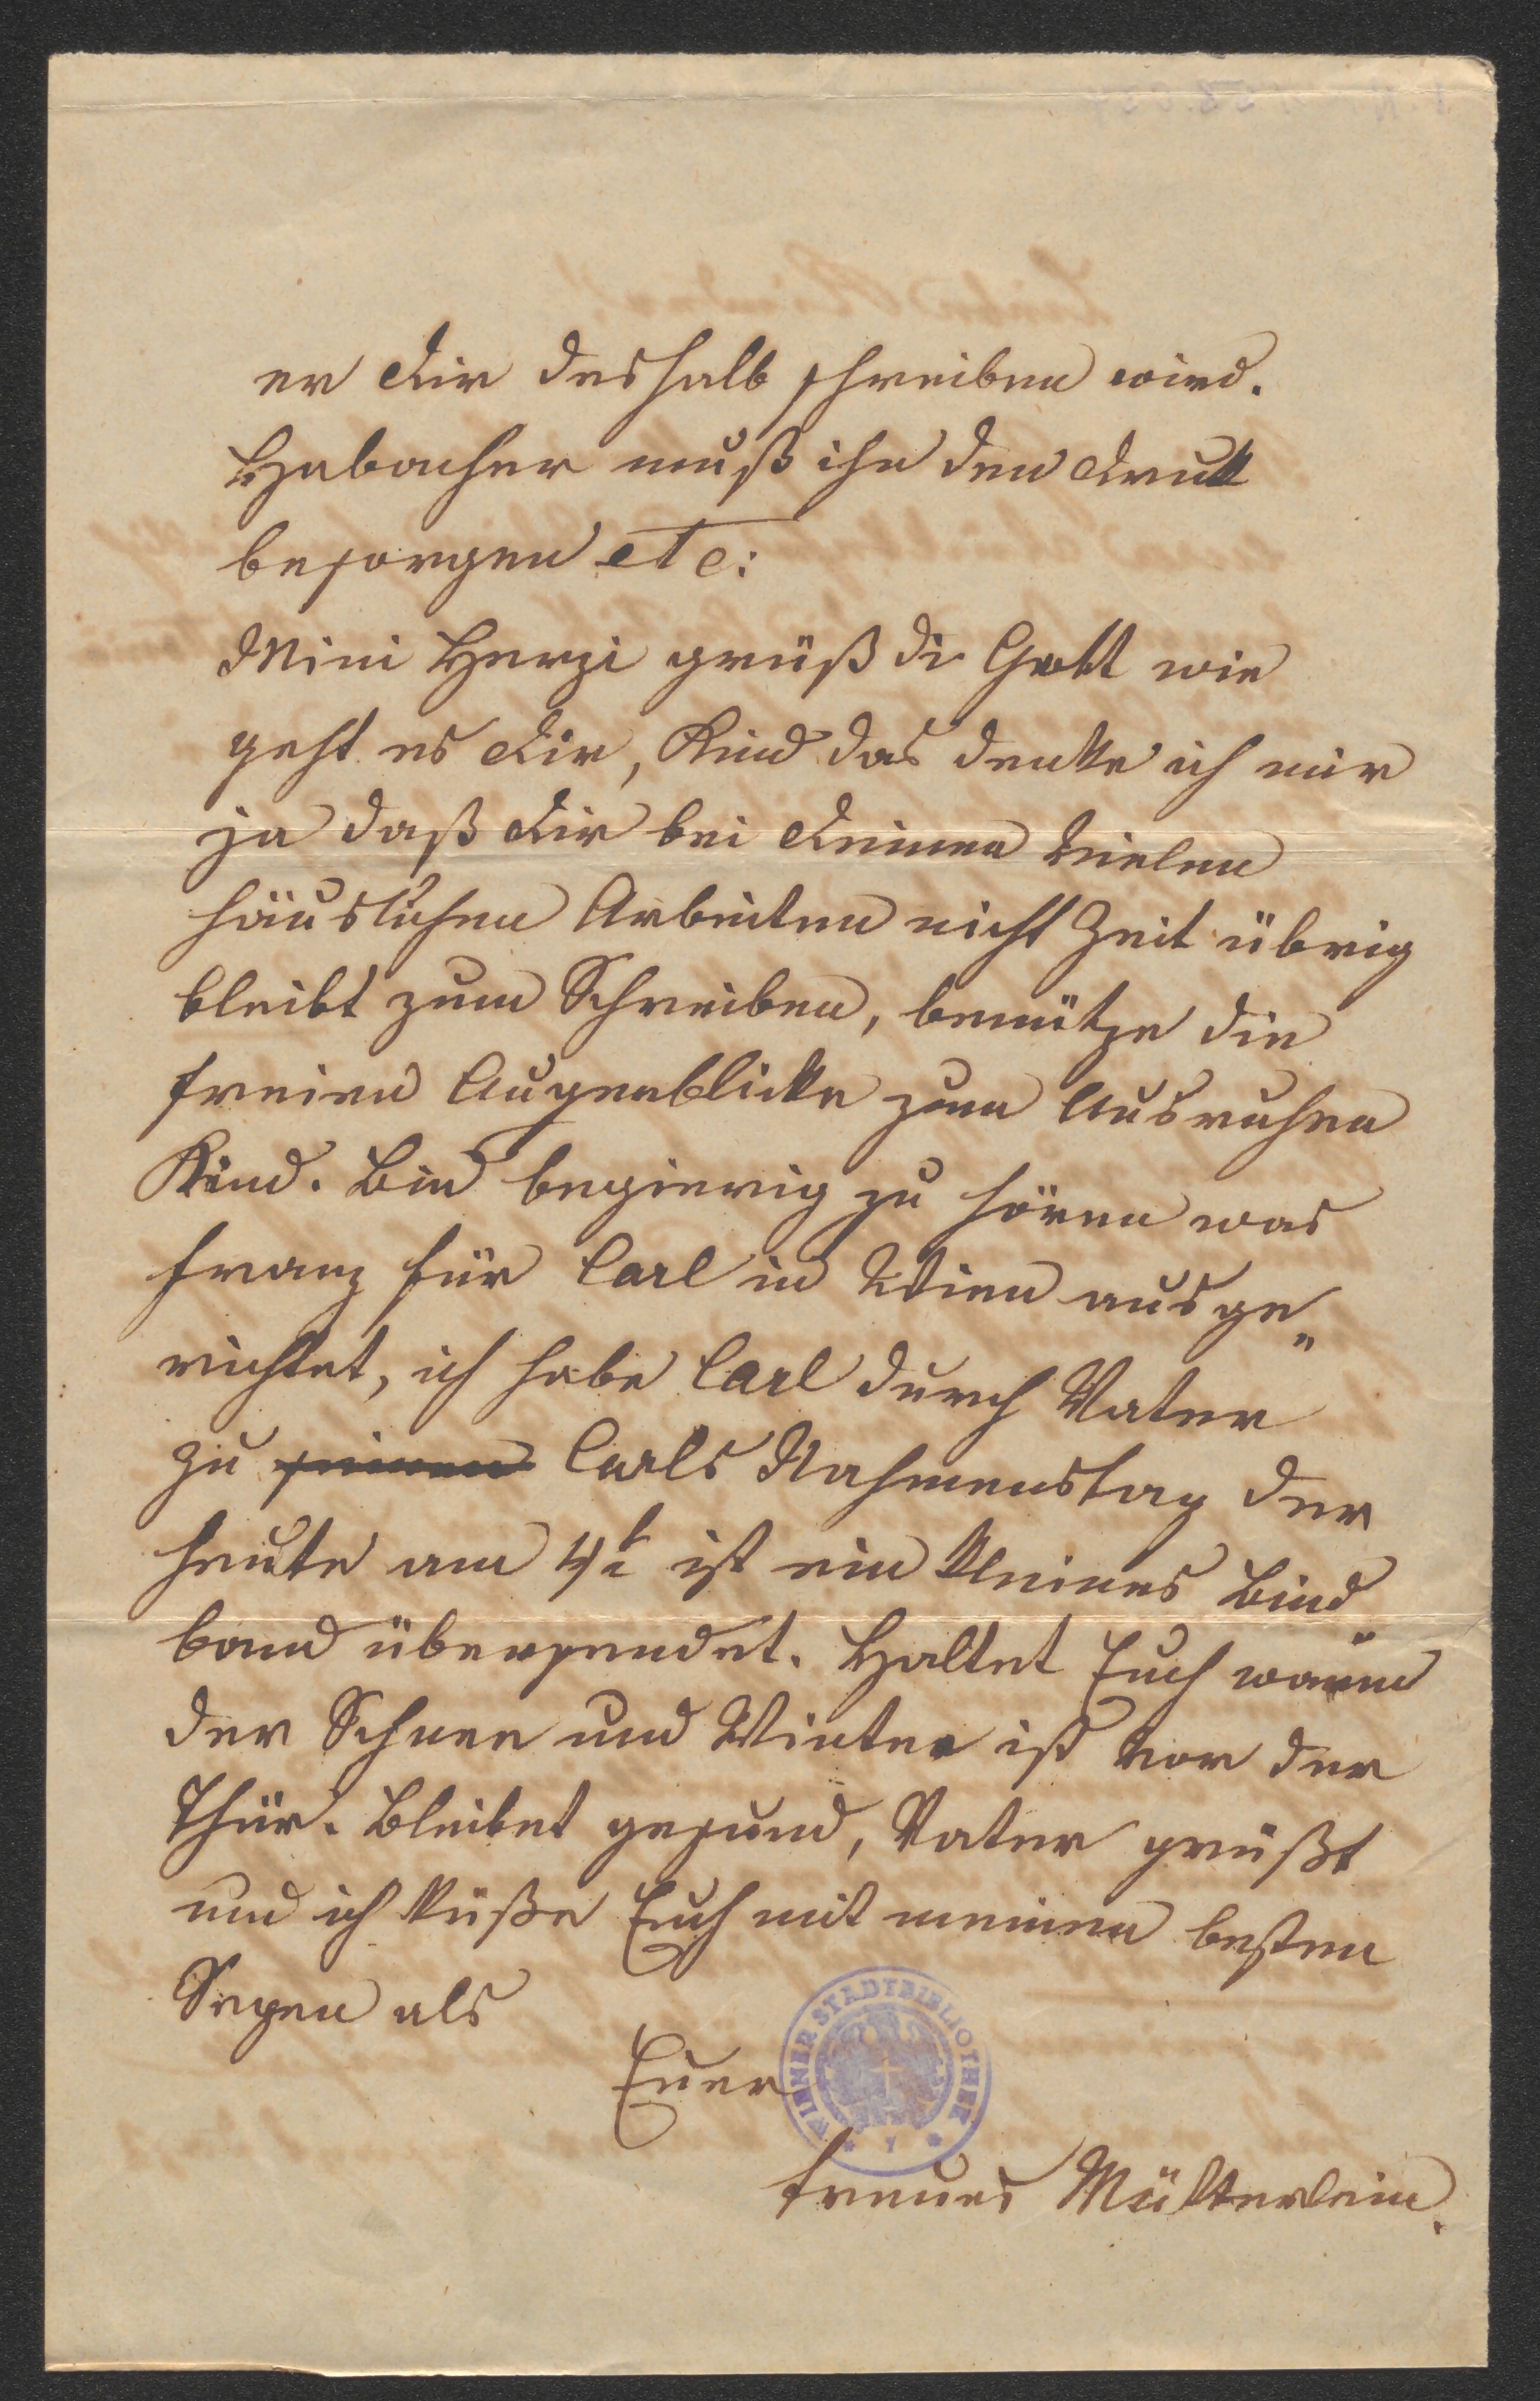 er Dir deshalb schreiben wird.
Habacher muß ihr den Druck
besorgen etc:
Mini Herzi grüß di Gott wie
geht es Dir, Kind das denke ich mir
ja daß Dir bei Deinen vielen
häuslichen Arbeiten nicht Zeit übrig
bleibt zum Schreiben, benütze die
freien Augenblicke zum Ausruhen
Kind. Bin begierig zu hören was
Franz für Carl in Wien ausge„
richtet, ich habe Carl durch Vater
zu seinen Carls Nahmenstag der
heute am 4t ist ein kleines Bind
band übersendet. Haltet Euch warm
der Schnee und Winter ist vor der
Thür. Bleibet gesund, Vater grüßt
und ich küße Euch mit meinen besten
Segen als
Euer
treues Mütterlein.
WIENER STADTBIBLIOTHEK